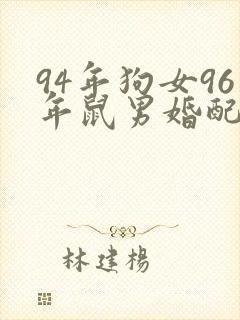 94年狗女96
年鼠男婚配
林建楊